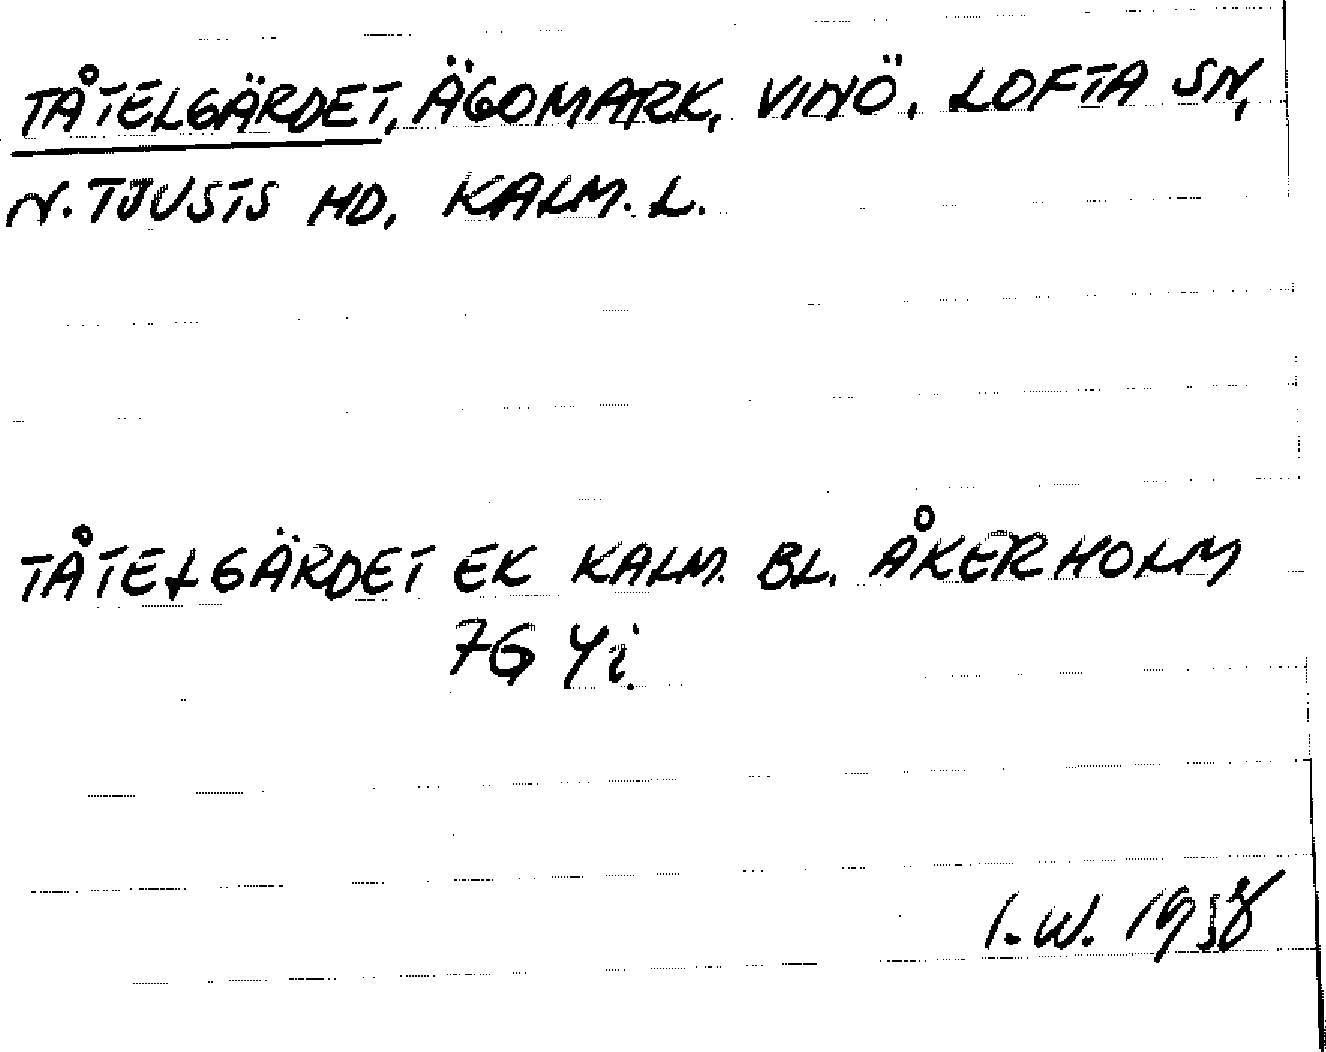 TÅTELGÄRDET, ÄGOMARK, VINÖ, LOFTA SN,
N. TJUSTS HD, KALM. L.
TÅTELGÄRDET EK KALM. BL. ÅKERHOLM
7G 4i.
I. W. 1958